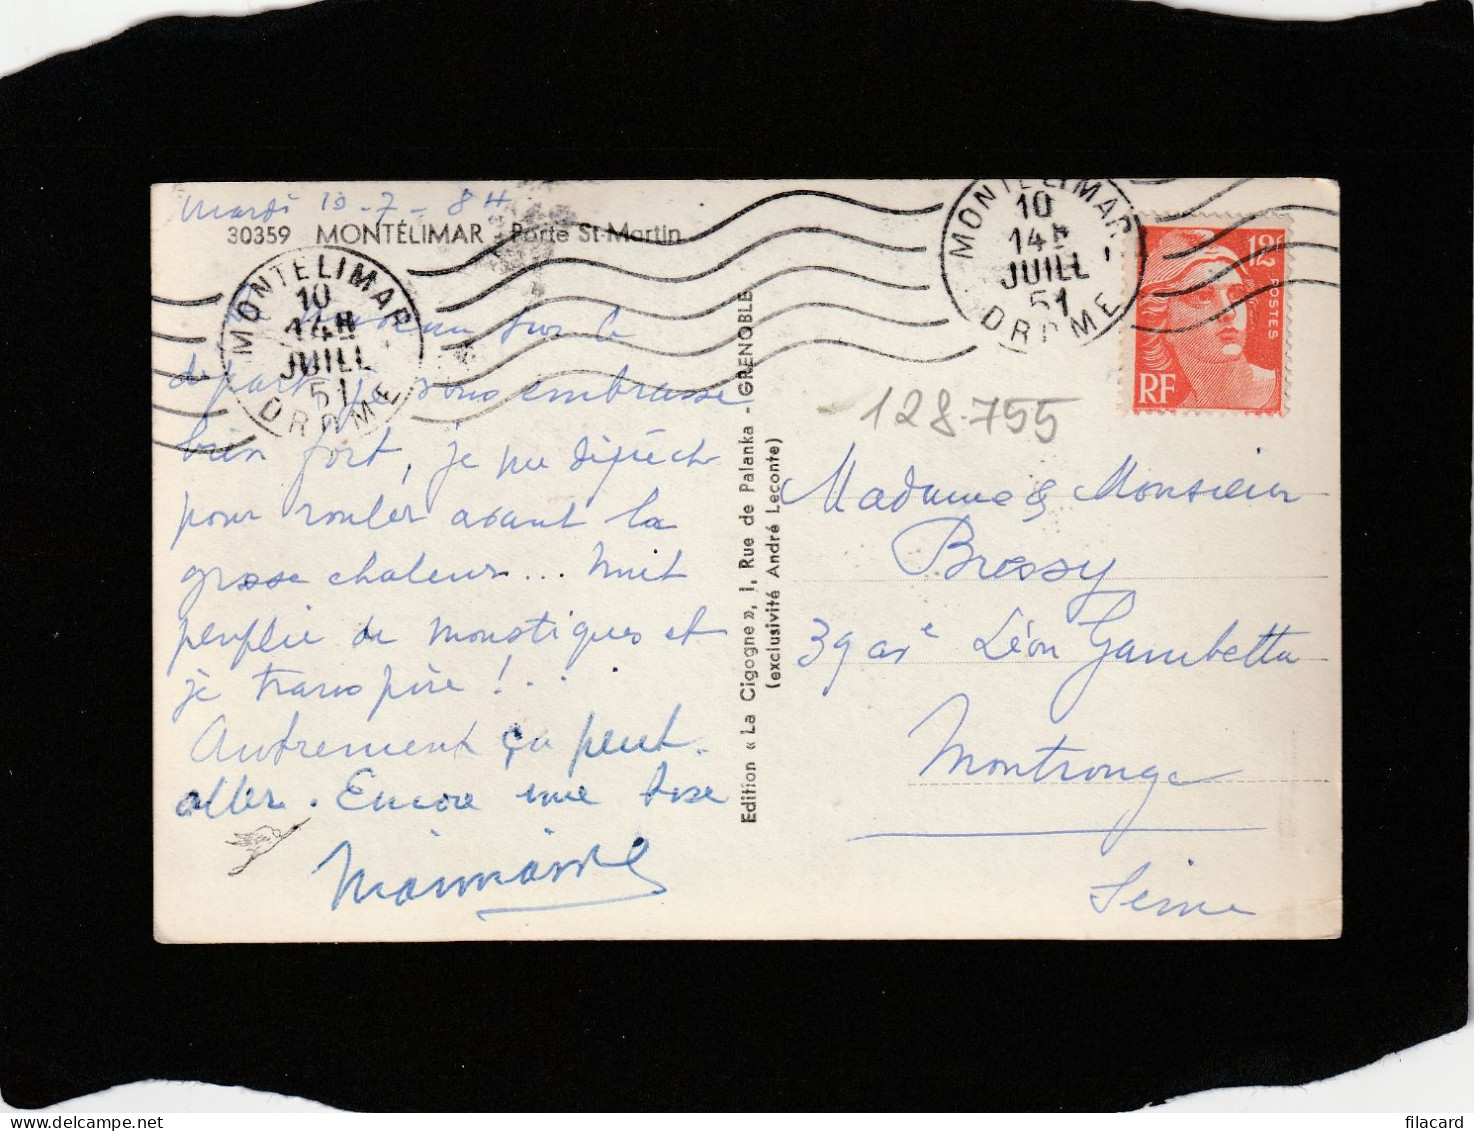 mardi 10-7- 8H
30359 MONTÉLIMAR - Porte St-Martin
MONTELIMAR
10
14H
JUILL
51
DROME
sur le
départ je vous embrasse
bien fort, je me dépêche
pour rouler avant la
grosse chaleur... Nuit
peuplée de moustiques et
je transpire !...
Autrement ça peut
aller. Encore une bise
Edition « La Cigogne », 1, Rue de Palanka - GRENOBLE
(exclusivité André Leconte)
MONTELIMAR
10
14H
JUILL
51
DROME
12F
POSTES
RF
128-755
Madame & Monsieur
Bressy
39 ave Léon Gambetta
Montrouge
Seine
filacard